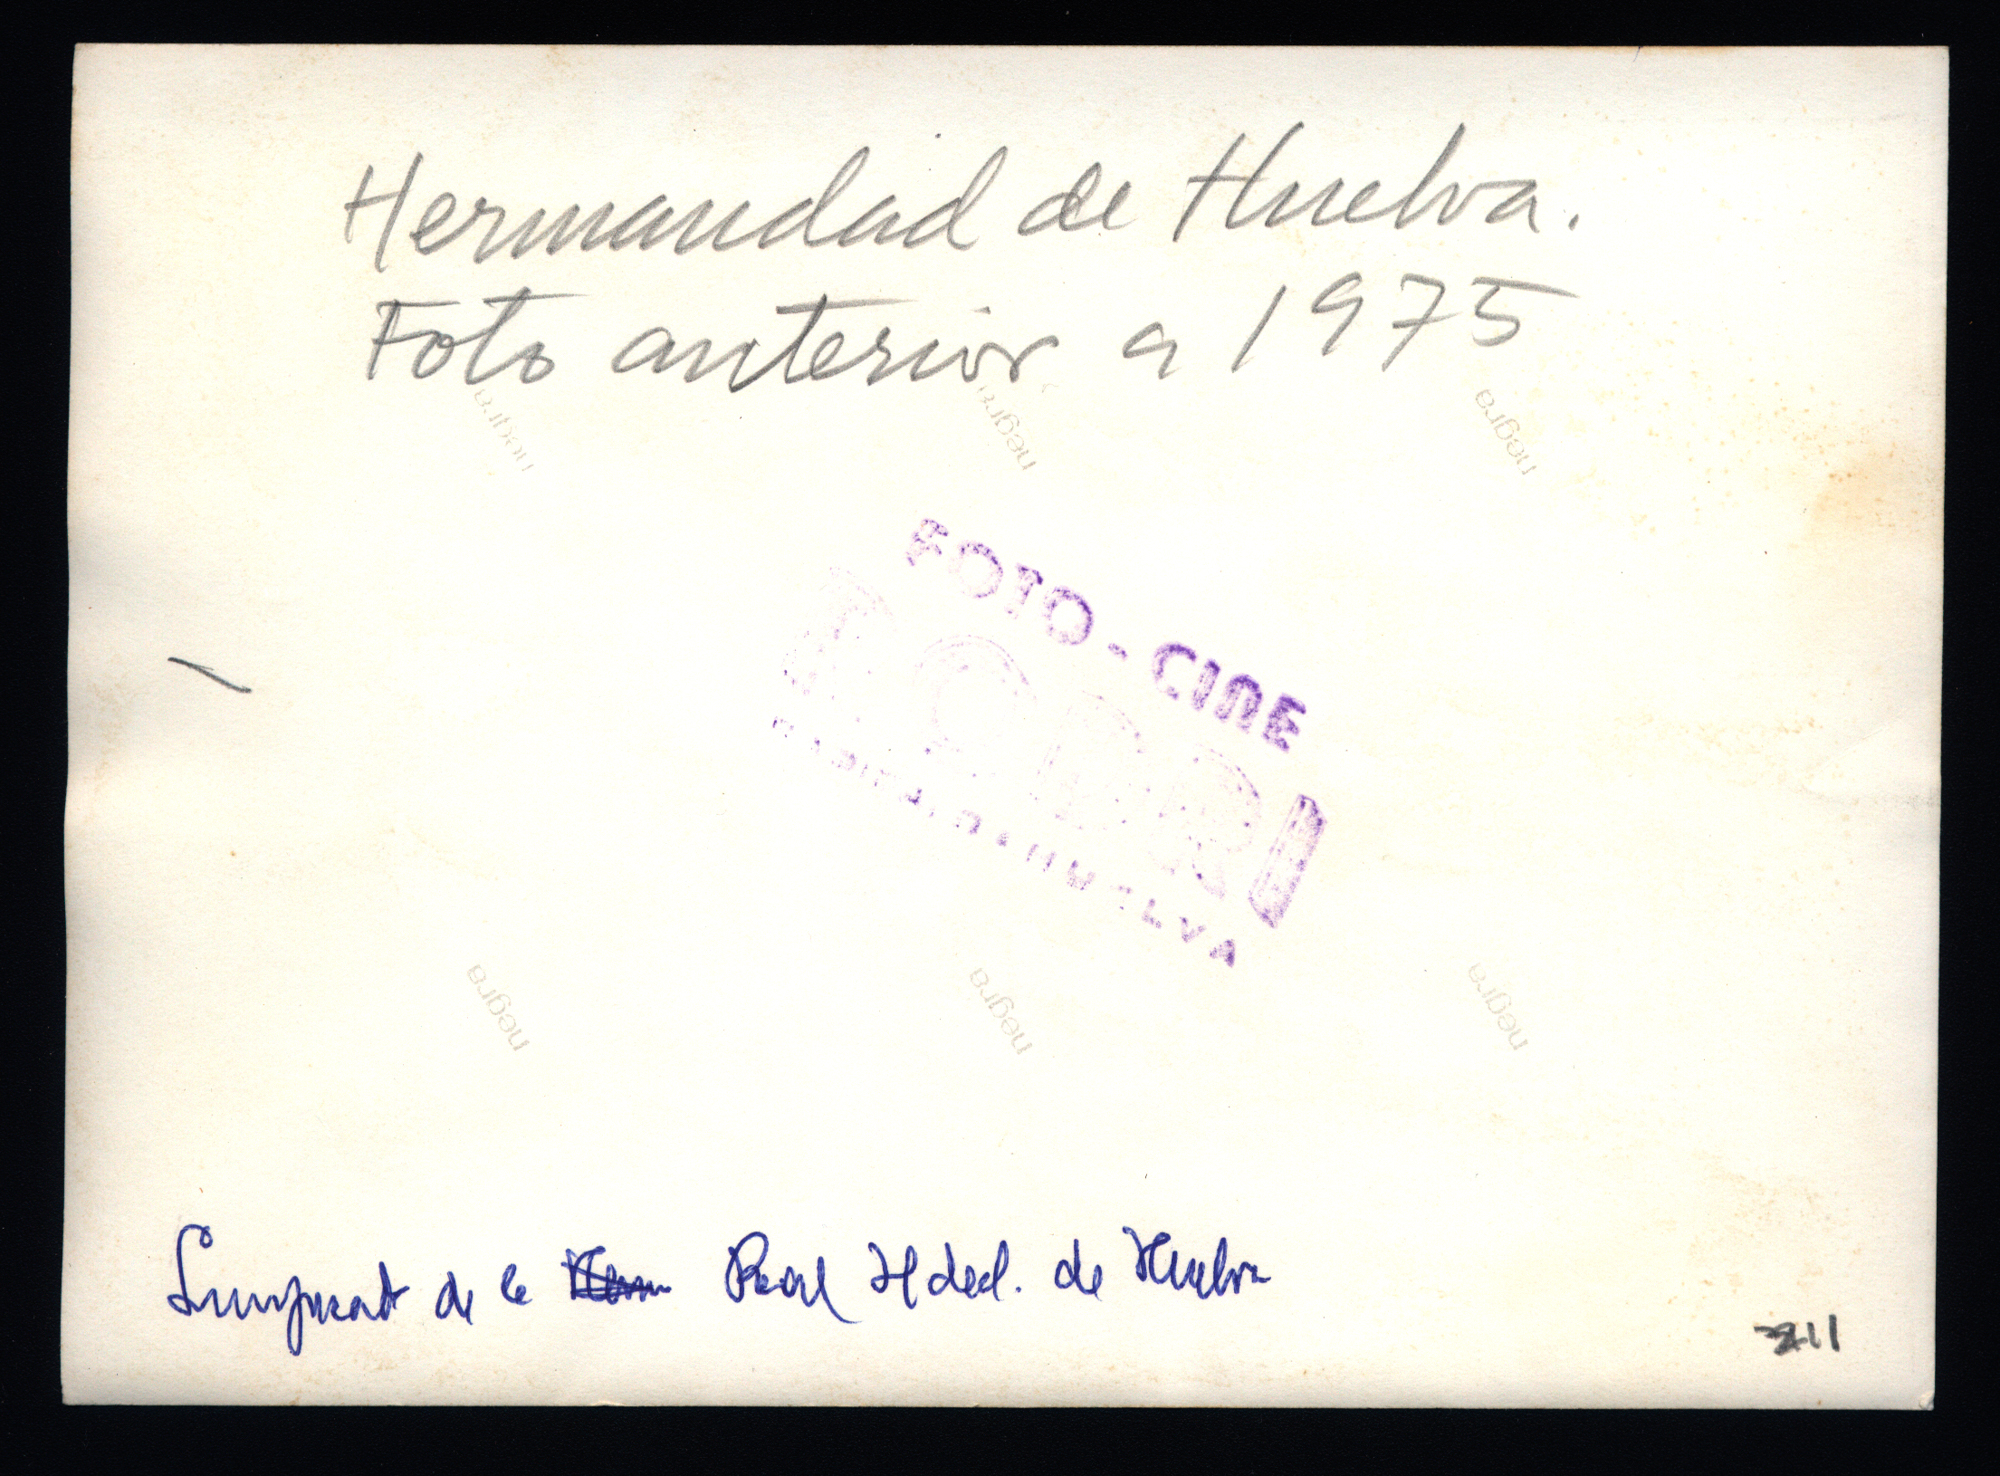 Hermandad de Huelva.
Foto anterior a 1975
negra negra negra
FOTO - CINE
RODRI
HUELVA
negra negra negra
Simpecado de la Real Hdad. de Huelva